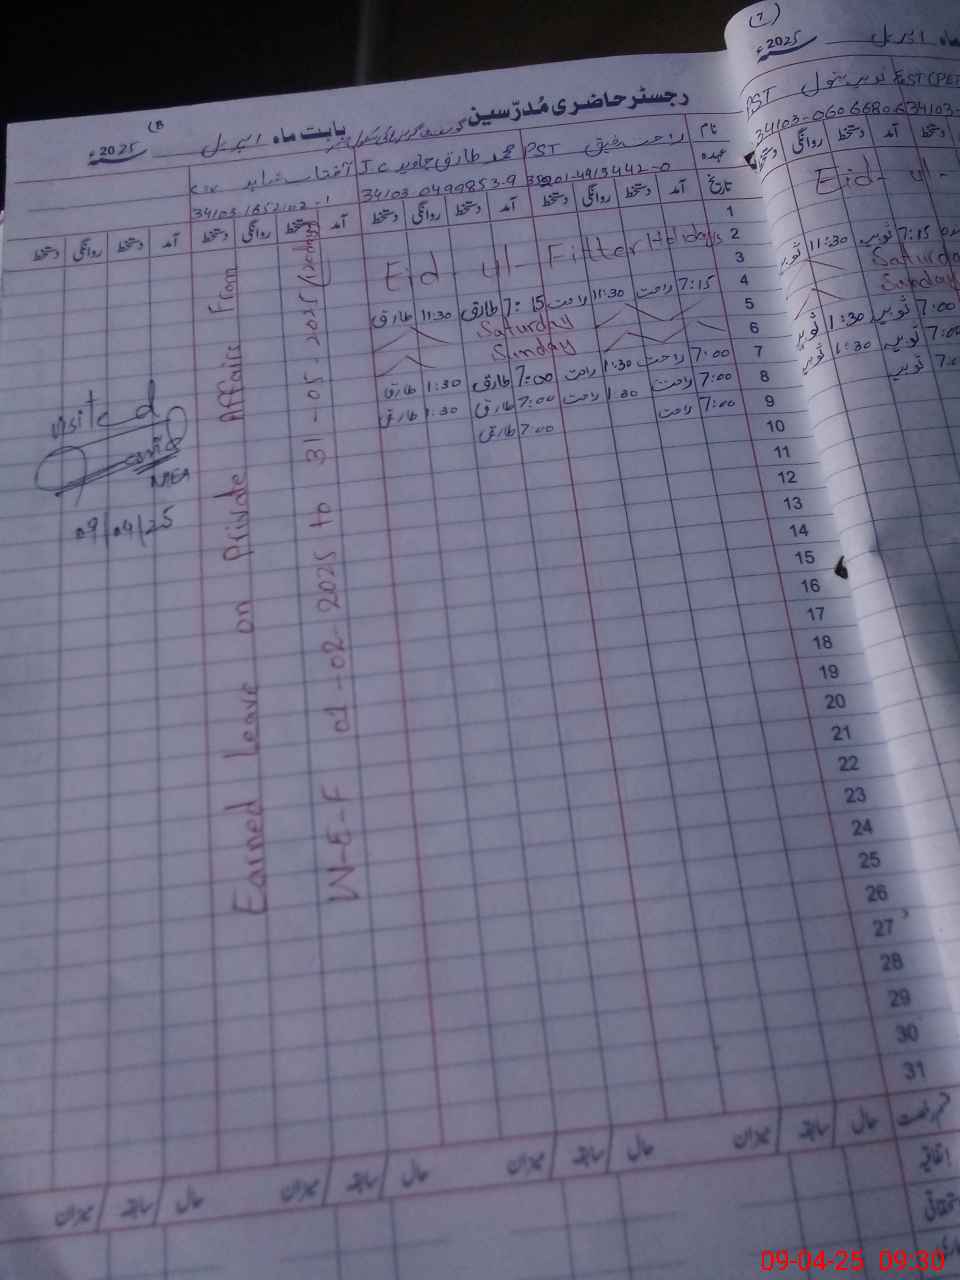 (8
رجسٹر حاضری مُدرّسین
بابت ماہ اپریل 2025ء
نام
عہدہ
راحت شفیق PST
محمد طارق جاوید
34103-0499853-9
تاریخ
آمد دستخط روانگی دستخط آمد دستخط روانگی دستخط آمد دستخط روانگی دستخط آمد دستخط روانگی دستخط
1
2 Eid-ul-Fitter Holidays
3
4 7:15 راحت 11:30 راحت 7:15 طارق 11:30 طارق
5 Saturday
6 Sunday
7 7:00 راحت 1:30 راحت 7:00 طارق 1:30 طارق
8 7:00 راحت 1:30 راحت 7:00 طارق 1:30 طارق
9 7:00 راحت 7:00 طارق
10
11
12
13
14
15
16
17
18
19
20
21
22
23
24
25
26
27
28
29
30
31
Earned Leave on Private Affairs From
W-E-F 01-02-2025 to 31-05-2025
visited
09/04/25
حال سابقہ میزان حال سابقہ میزان حال سابقہ میزان حال سابقہ میزان
اتفاقیہ
(7)
2025ء
اپریل ماہ
PST
34103-0606680-6
34103-
آمد دستخط روانگی دستخط
Eid-ul-
7:15 11:30
Saturda
Sunday
7:00 1:30
7:00 1:30
09-04-25 09:30